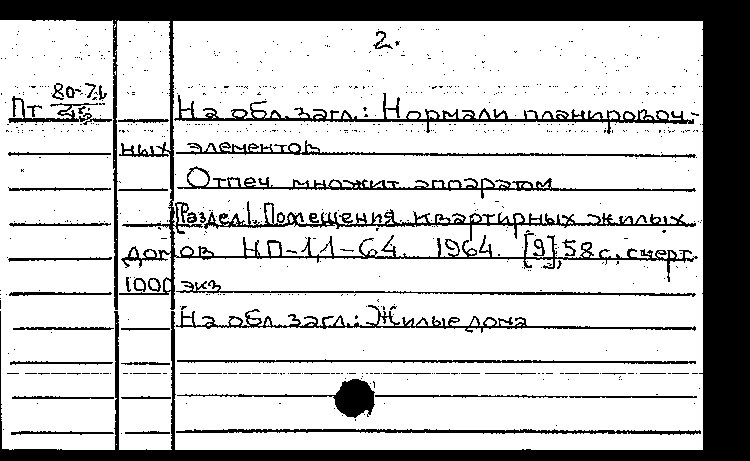 2.
Пт 80-71/45 На обл. загл.: Нормали планировоч-
ных элементов
Отпеч. множит. аппаратом
[Раздел] 1. Помещения квартирных жилых
домов НП-1,1-64. 1964. [9], 58 с, с черт.
1000 экз
На обл. загл.: Жилые дома